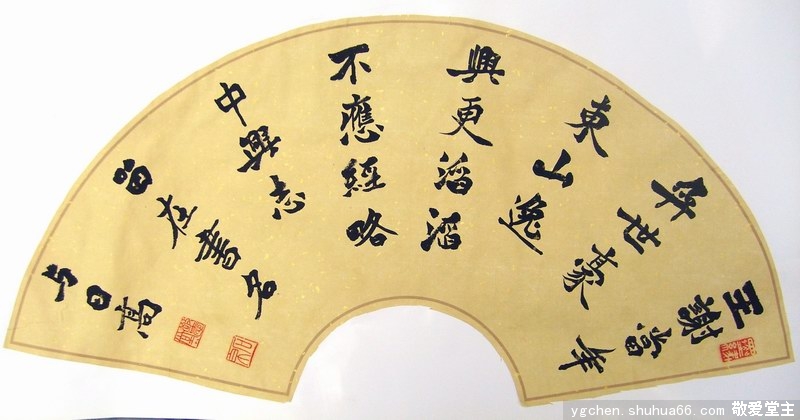 王謝當年
併世豪
東山逸
興更滔滔
不應經略
中興志
留在書名
与日高
ygchen.shuhua66.com 敬爱堂主